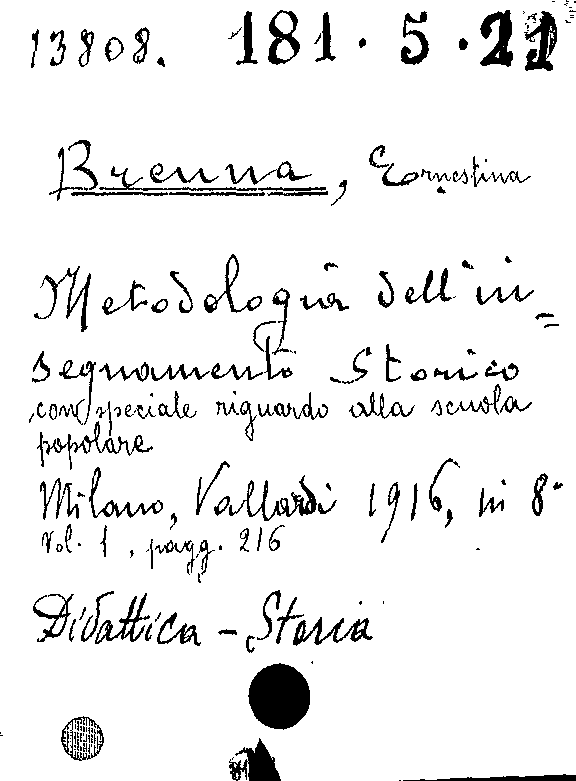 13808. 181.5.21
Brenna, Ernestina
Metodologia dell'in=
segnamento Storico
con speciale riguardo alla scuola
popolare
Milano, Vallardi 1916, in 8°
Vol. 1, pagg. 216
Didattica - Storia